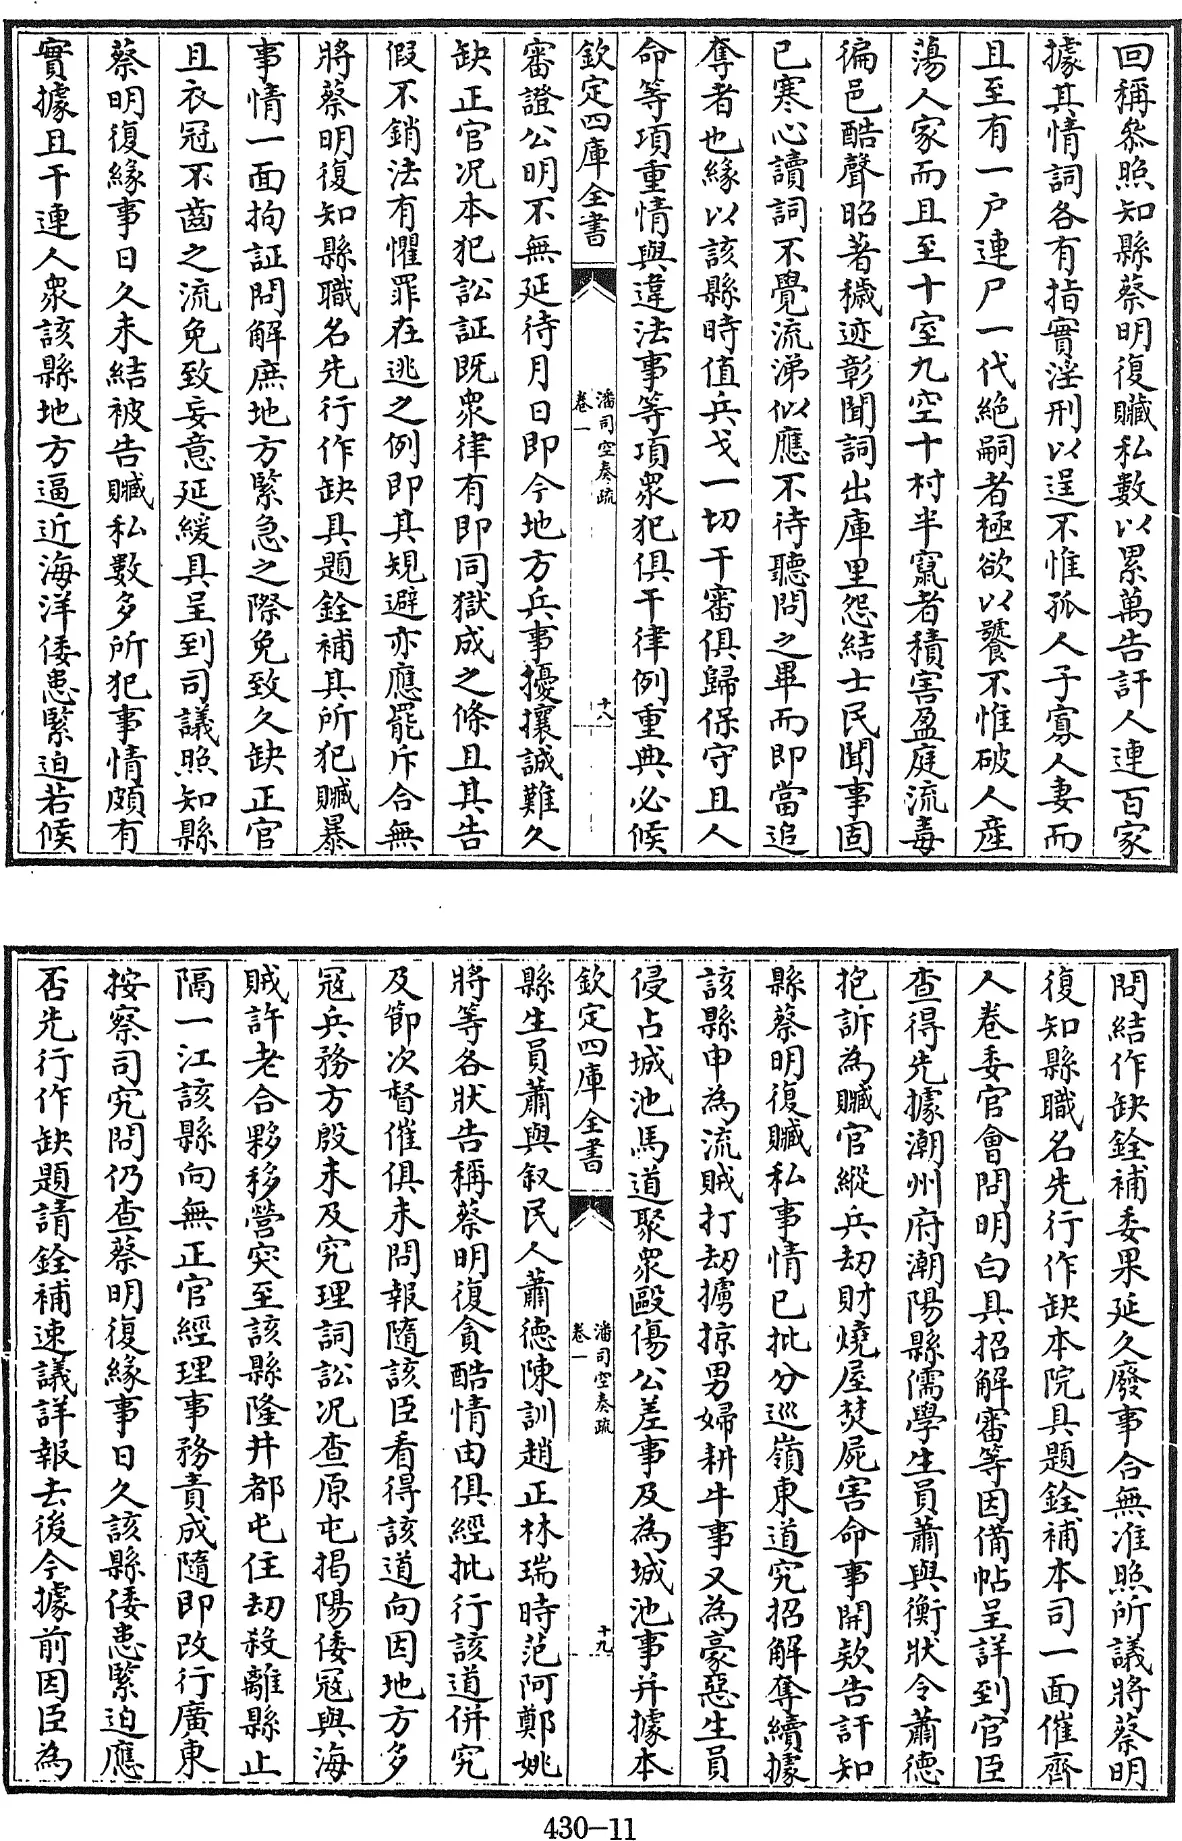 回稱叅照知縣蔡明復贓私數以累萬告訐人連百家
據其情詞各有指實淫刑以逞不惟孤人子寡人妻而
且至有一户連尸一代絶嗣者極欲以饕不惟破人産
蕩人家而且至十室九空十村半竄者積害盈庭流毒
徧邑酷聲昭著穢迹彰聞詞出庫里怨結士民聞事固
已寒心讀詞不覺流涕似應不待聽問之畢而即當追
奪者也緣以該縣時值兵戈一切干審俱歸保守且人
命等項重情與違法事等項衆犯俱干律例重典必候
欽定四庫全書
潘司空奏疏
卷一
十八
審證公明不無延待月日即今地方兵事擾攘誠難久
缺正官况本犯訟証既衆律有即同獄成之條且其告
假不銷法有懼罪在逃之例即其規避亦應罷斥合無
將蔡明復知縣職名先行作缺具題銓補其所犯贓暴
事情一面拘証問解庶地方緊急之際免致久缺正官
且衣冠不齒之流免致妄意延緩具呈到司議照知縣
蔡明復緣事日久未結被告贓私數多所犯事情頗有
實據且干連人衆該縣地方逼近海洋倭患緊迫若候
問結作缺銓補委果延久廢事合無准照所議將蔡明
復知縣職名先行作缺本院具題銓補本司一面催齊
人卷委官會問明白具招解審等因備帖呈詳到官臣
查得先據潮州府潮陽縣儒學生員蕭與衡狀令蕭德
抱訴為贓官縱兵刼財燒屋焚屍害命事開欵告訐知
縣蔡明復贓私事情已批分巡嶺東道究招解奪續據
該縣申為流賊打刼擄掠男婦耕牛事又為豪惡生員
侵占城池馬道聚衆毆傷公差事及為城池事并據本
欽定四庫全書
潘司空奏疏
卷一
十九
縣生員蕭與叙民人蕭德陳訓趙正林瑞時范阿鄭姚
將等各狀告稱蔡明復貪酷情由俱經批行該道併究
及節次督催俱未問報隨該臣看得該道向因地方多
冦兵務方殷未及究理詞訟况查原屯揭陽倭冦與海
賊許老合夥移營突至該縣隆井都屯住刼殺離縣止
隔一江該縣向無正官經理事務責成隨即改行廣東
按察司究問仍查蔡明復緣事日久該縣倭患緊迫應
否先行作缺題請銓補速議詳報去後今據前因臣為
430-11